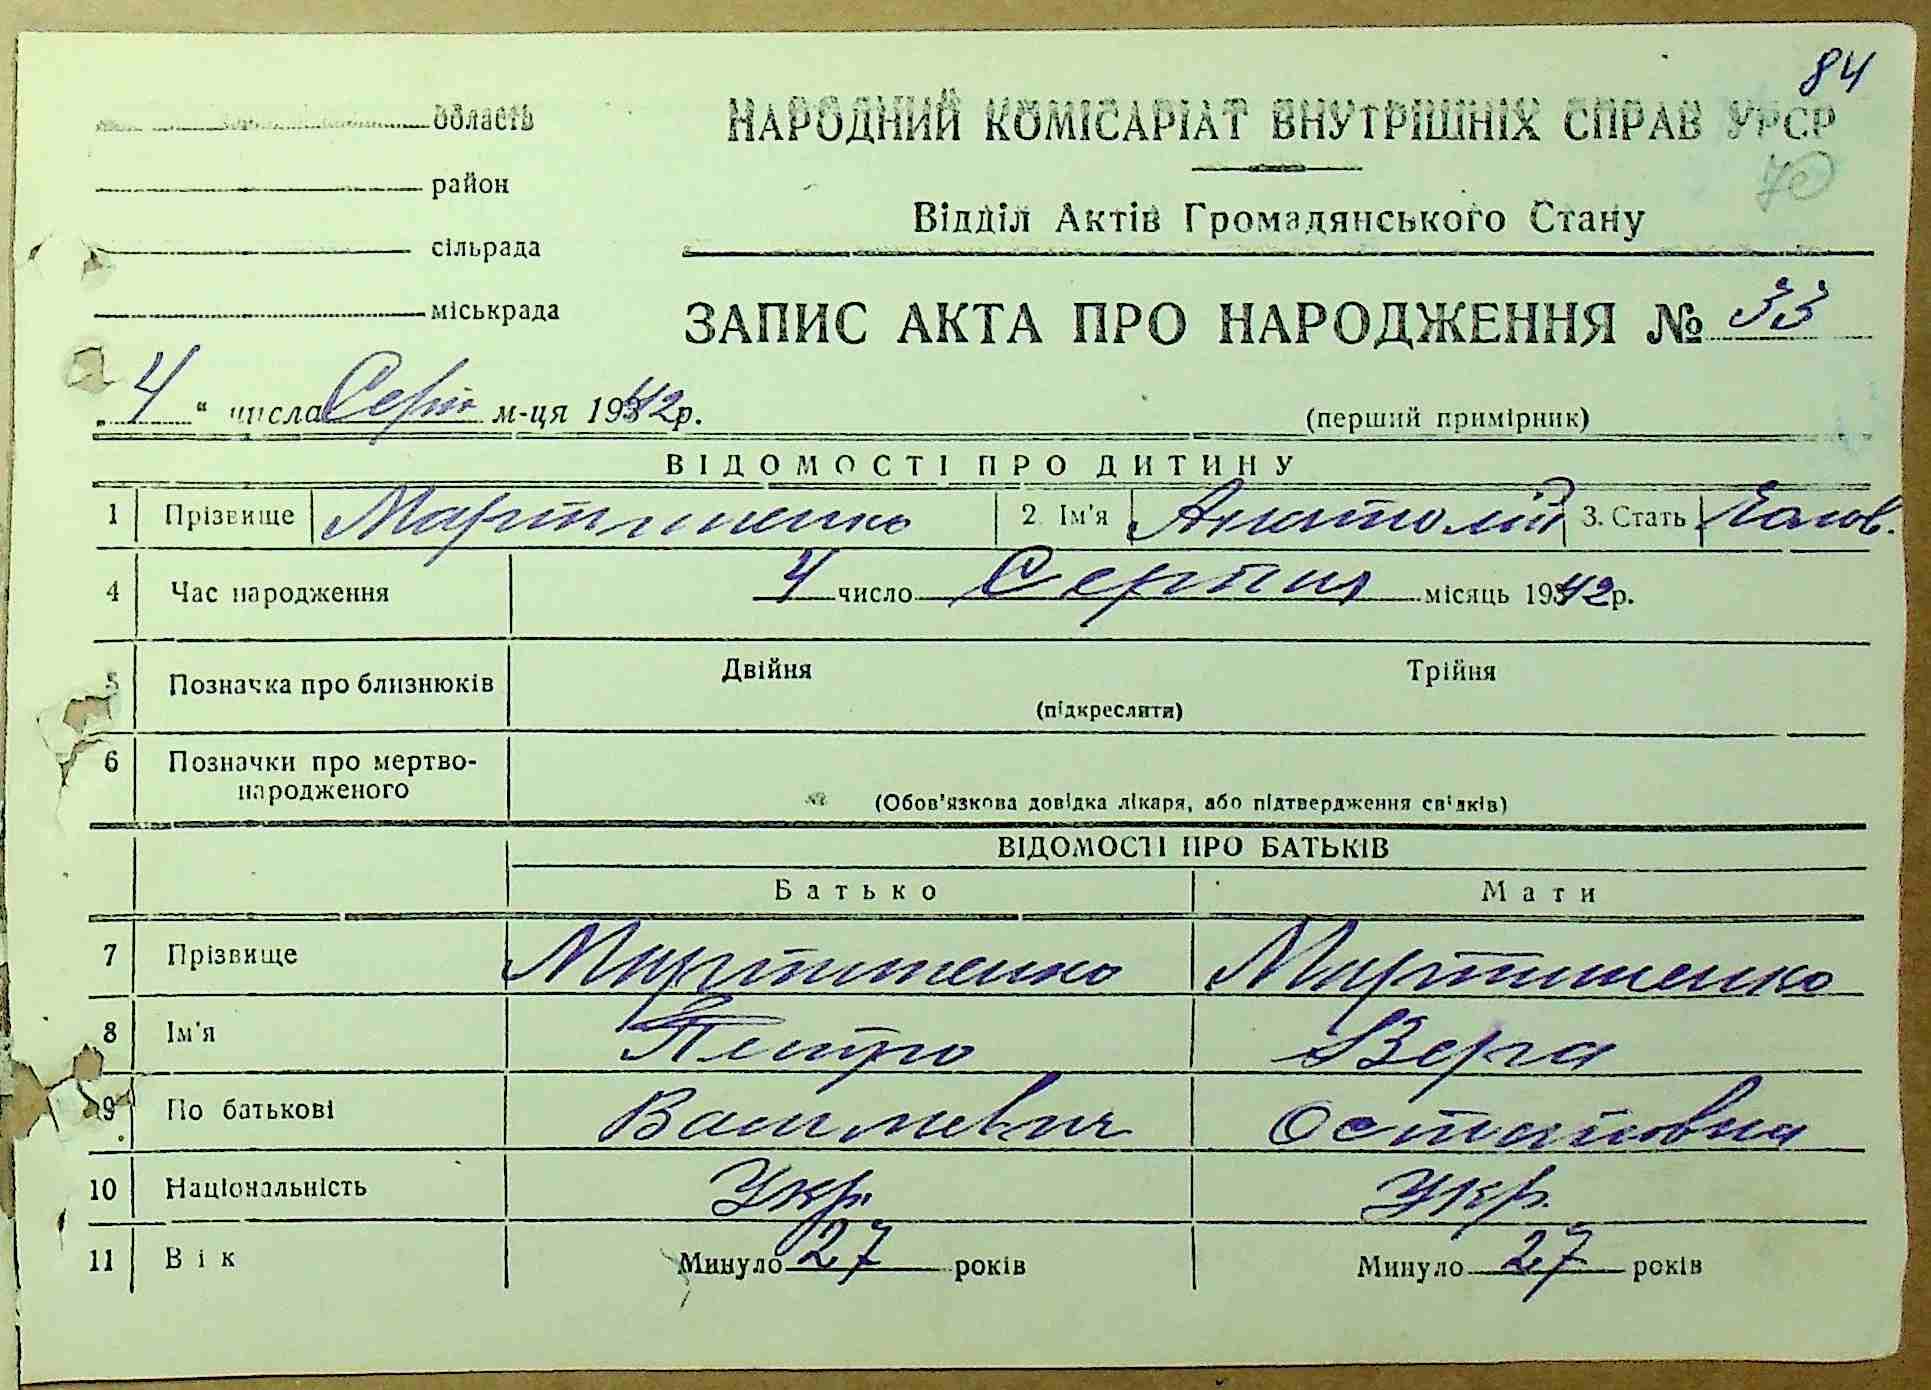 84
область
НАРОДНИЙ КОМІСАРІАТ ВНУТРІШНІХ СПРАВ УРСР
70
район
Відділ Актів Громадянського Стану
сільрада
міськрада
ЗАПИС АКТА ПРО НАРОДЖЕННЯ № 33
„4“ числа Серп м-ця 1942р.
(перший примірник)
ВІДОМОСТІ ПРО ДИТИНУ
1 Прізвище Мартиненко 2. Ім'я Анатолій 3. Стать Чолов.
4 Час народження 4 число Серпня місяць 1942р.
5 Позначка про близнюків Двійня Трійня
(підкреслити)
6 Позначки про мертво-
народженого
(Обов'язкова довідка лікаря, або підтвердження свідків)
ВІДОМОСТІ ПРО БАТЬКІВ
Батько Мати
7 Прізвище Мартиненко Мартиненко
8 Ім'я Петро Вера
9 По батькові Василевич Остаповна
10 Національність Укр. Укр.
11 Вік Минуло 27 років Минуло 27 років